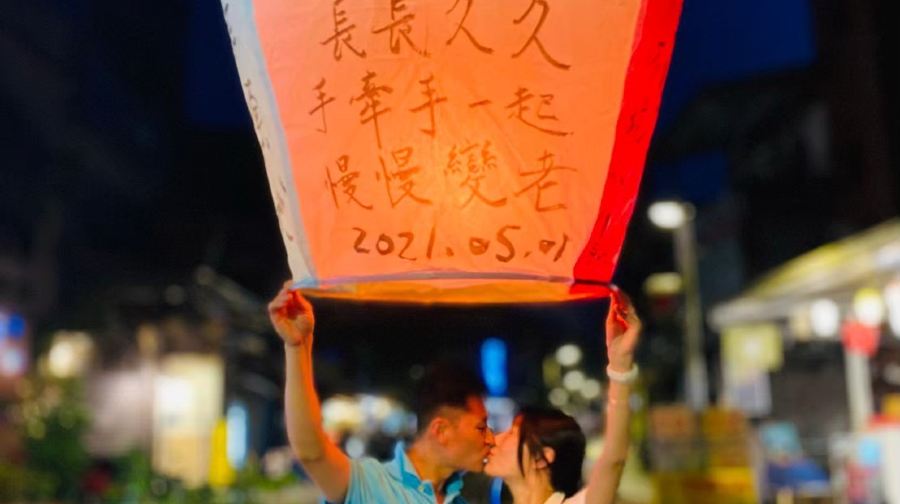 長長久久
手牽手一起
慢慢變老
2021.05.01